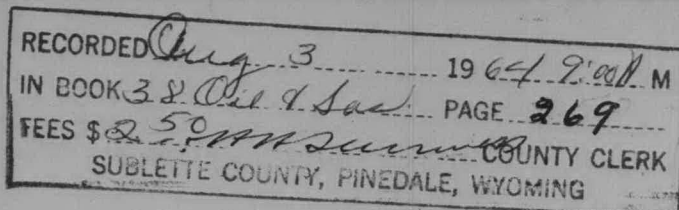 RECORDED Aug 3 1964 9:00 A M
IN BOOK 38 Oil & Gas PAGE 269
FEES $2.50 COUNTY CLERK
SUBLETTE COUNTY, PINEDALE, WYOMING